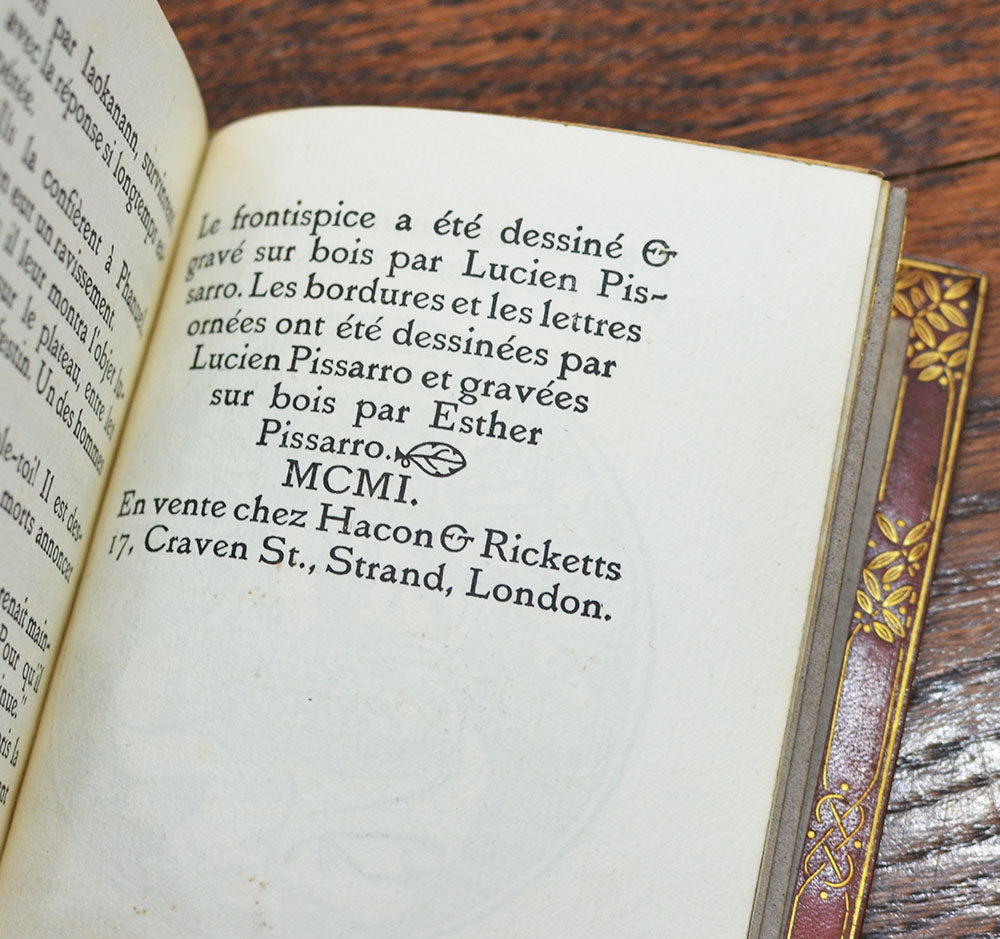 par Laokanann, survinrent
avec la réponse si longtemps es-
pérée.
Ils la confièrent à Phanuel
en eut un ravissement.
il leur montra l'objet lu-
sur le plateau, entre les
festin. Un des hommes
le-toi! Il est des-
morts annoncer
renait main-
Pour qu'il
nue."
pris la
Le frontispice a été dessiné &
gravé sur bois par Lucien Pis-
sarro. Les bordures et les lettres
ornées ont été dessinées par
Lucien Pissarro et gravées
sur bois par Esther
Pissarro.
MCMI.
En vente chez Hacon & Ricketts
17, Craven St., Strand, London.